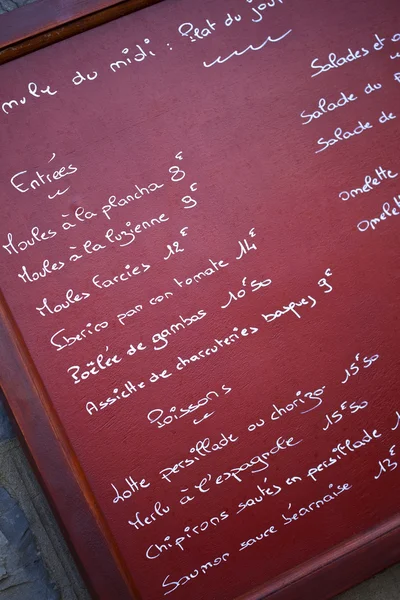 du midi : Plat du jour
Entrées
Moules à la plancha 8€
Moules à la luzienne 9€
Moules farcies 12€
Iberico pan con tomate 14€
Poëlée de gambas 10€50
Assiette de charcuteries basques 9€
Poissons
Lotte persillade ou chorizo 15€50
Merlu à l'espagnole 15€50
Chipirons sautés en persillade
Saumon sauce béarnaise 13€
Salades et
Salade du
Salade de
Omelette
Omelette